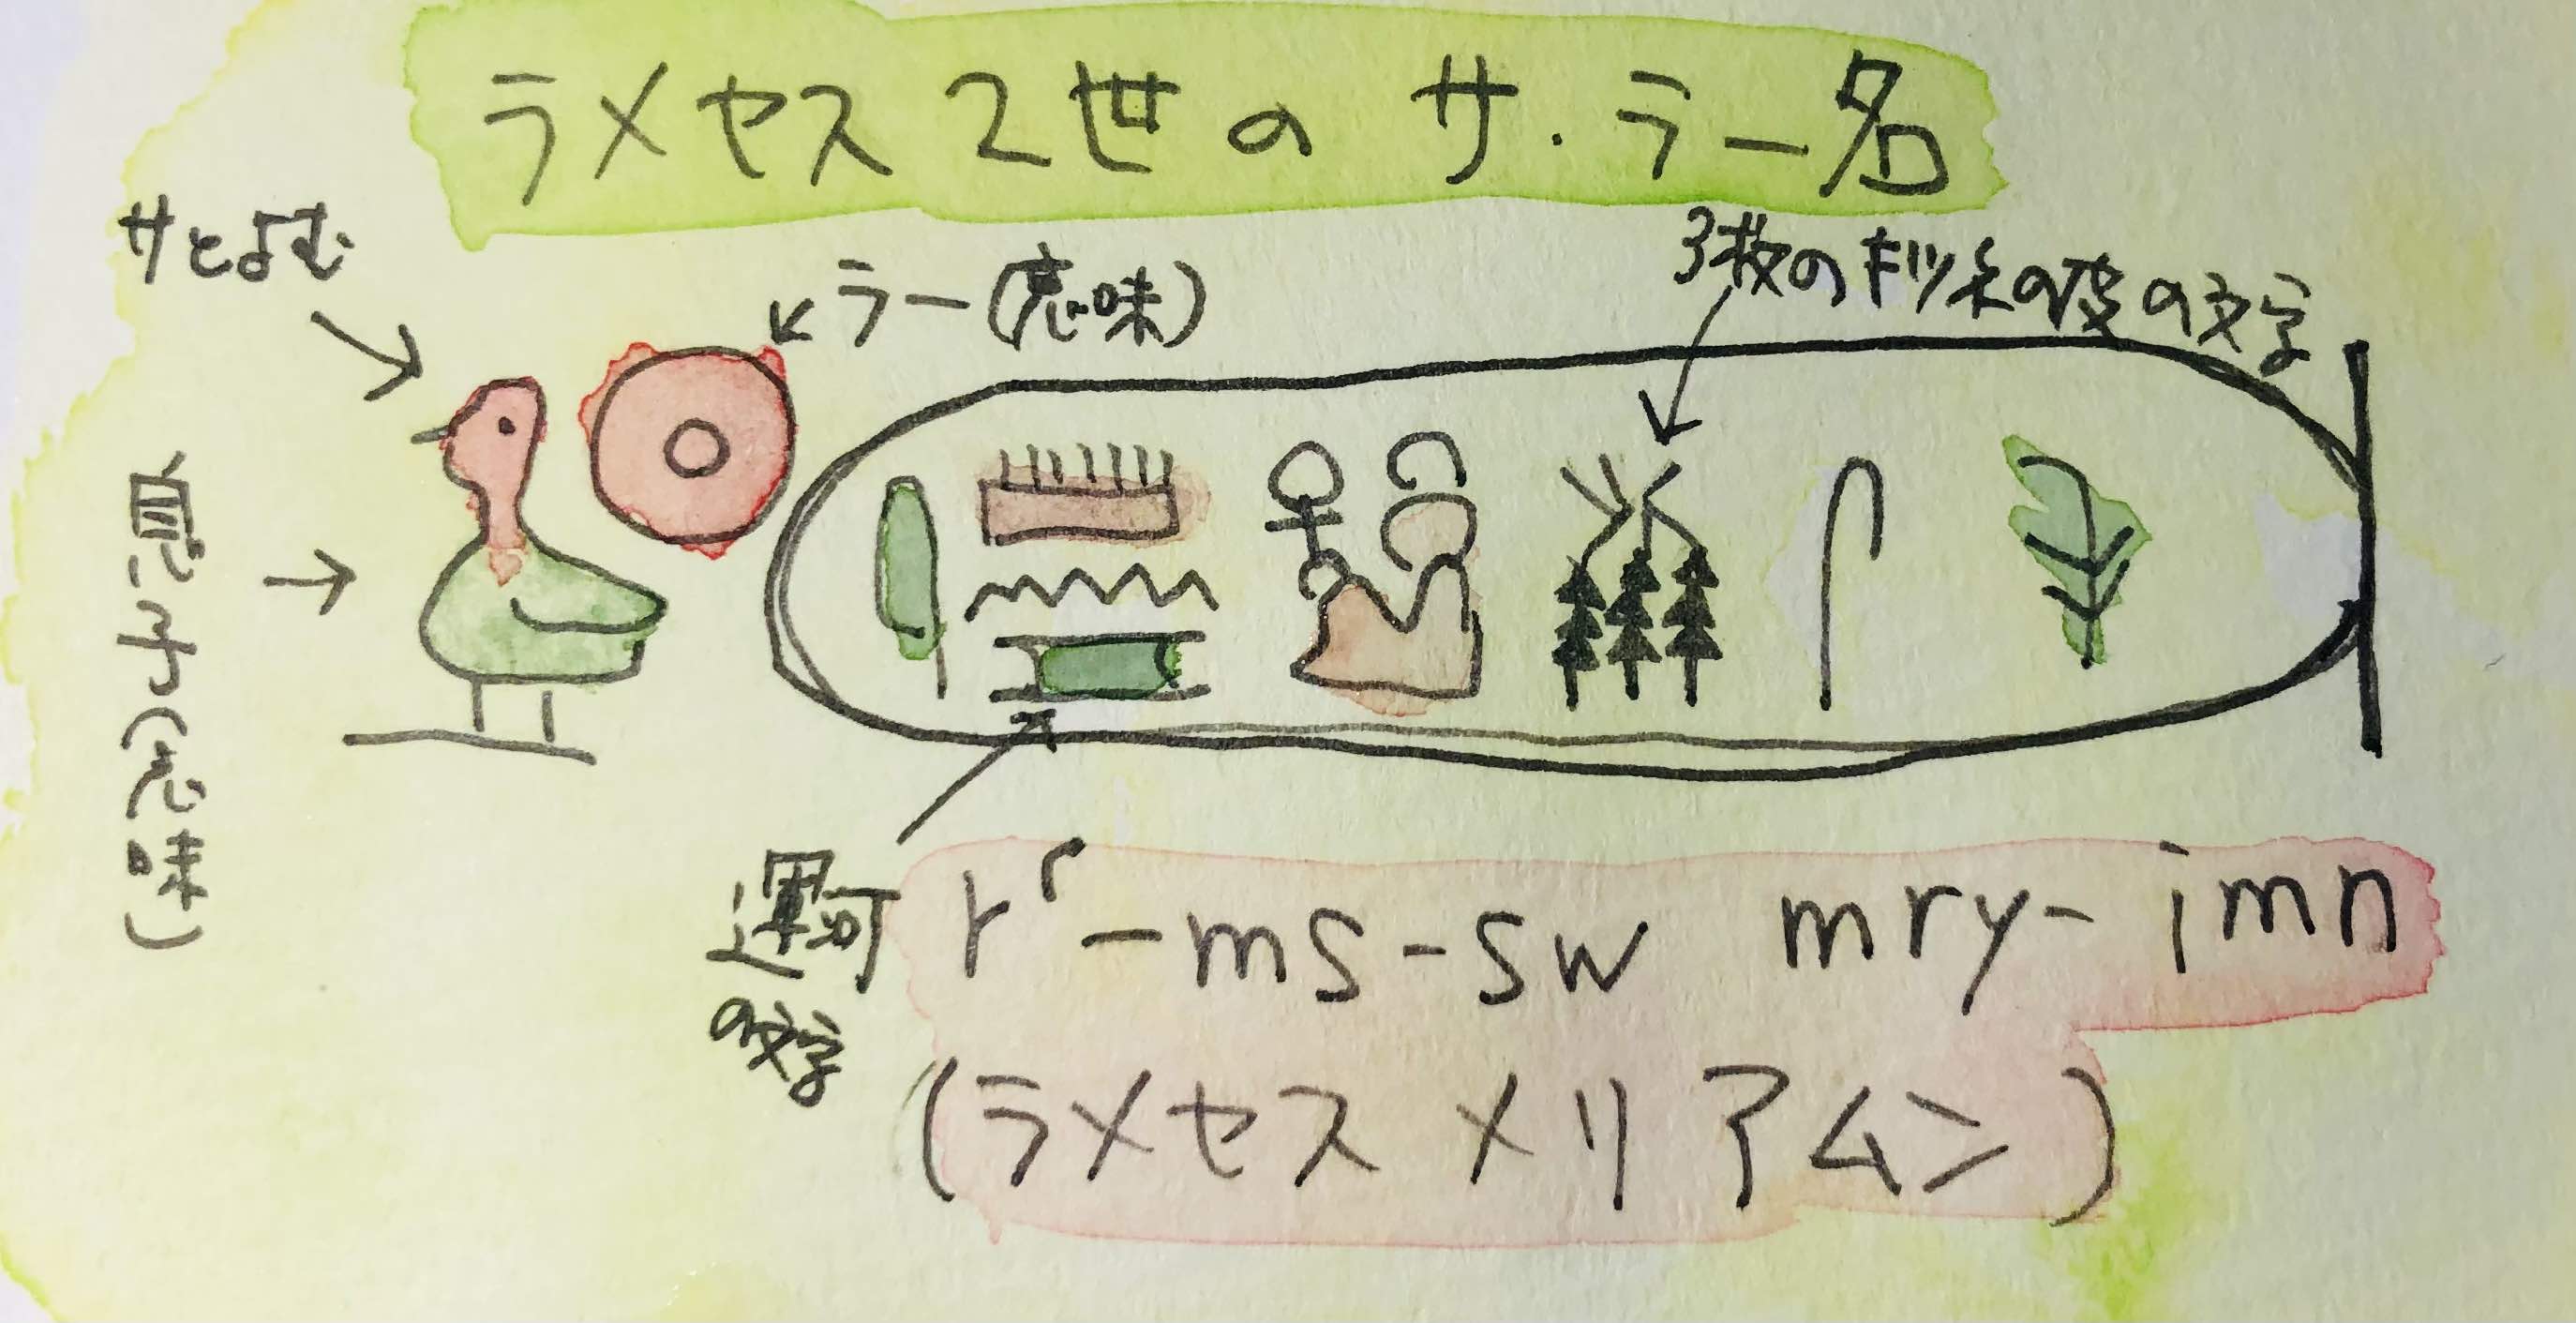 ラメセス2世のサ・ラー名
サとよむ
ラー(意味)
3枚のキツネの皮の文字
息子(意味)
運河
の文字
rʿ-ms-sw mry-imn
(ラメセス メリアムン)